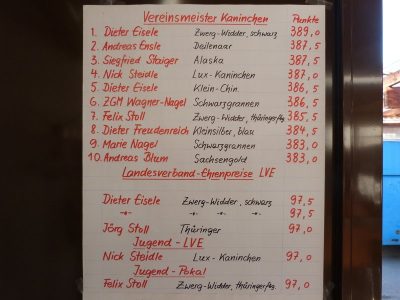 Vereinsmeister Kaninchen Punkte
1. Dieter Eisele Zwerg-Widder, schwarz 389,0
2. Andreas Ensle Deilenaar 387,5
3. Siegfried Staiger Alaska 387,5
4. Nick Steidle Lux-Kaninchen 387,0
5. Dieter Eisele Klein-Chin. 386,5
6. ZGM Wagner-Nagel Schwarzgrannen 386,5
7. Felix Stoll Zwerg-Widder, thüringerfbg. 385,5
8. Dieter Freudenreich Kleinsilber, blau 384,5
9. Marie Nagel Schwarzgrannen 383,0
10. Andreas Blum Sachsengold 383,0
Landesverband-Ehrenpreise LVE
Dieter Eisele Zwerg-Widder, schwarz 97,5
-"- -"- -"- -"- 97,5
Jörg Stoll Thüringer 97,0
Jugend-LVE
Nick Steidle Lux-Kaninchen 97,0
Jugend-Pokal
Felix Stoll Zwerg-Widder, thüringerfbg. 97,0